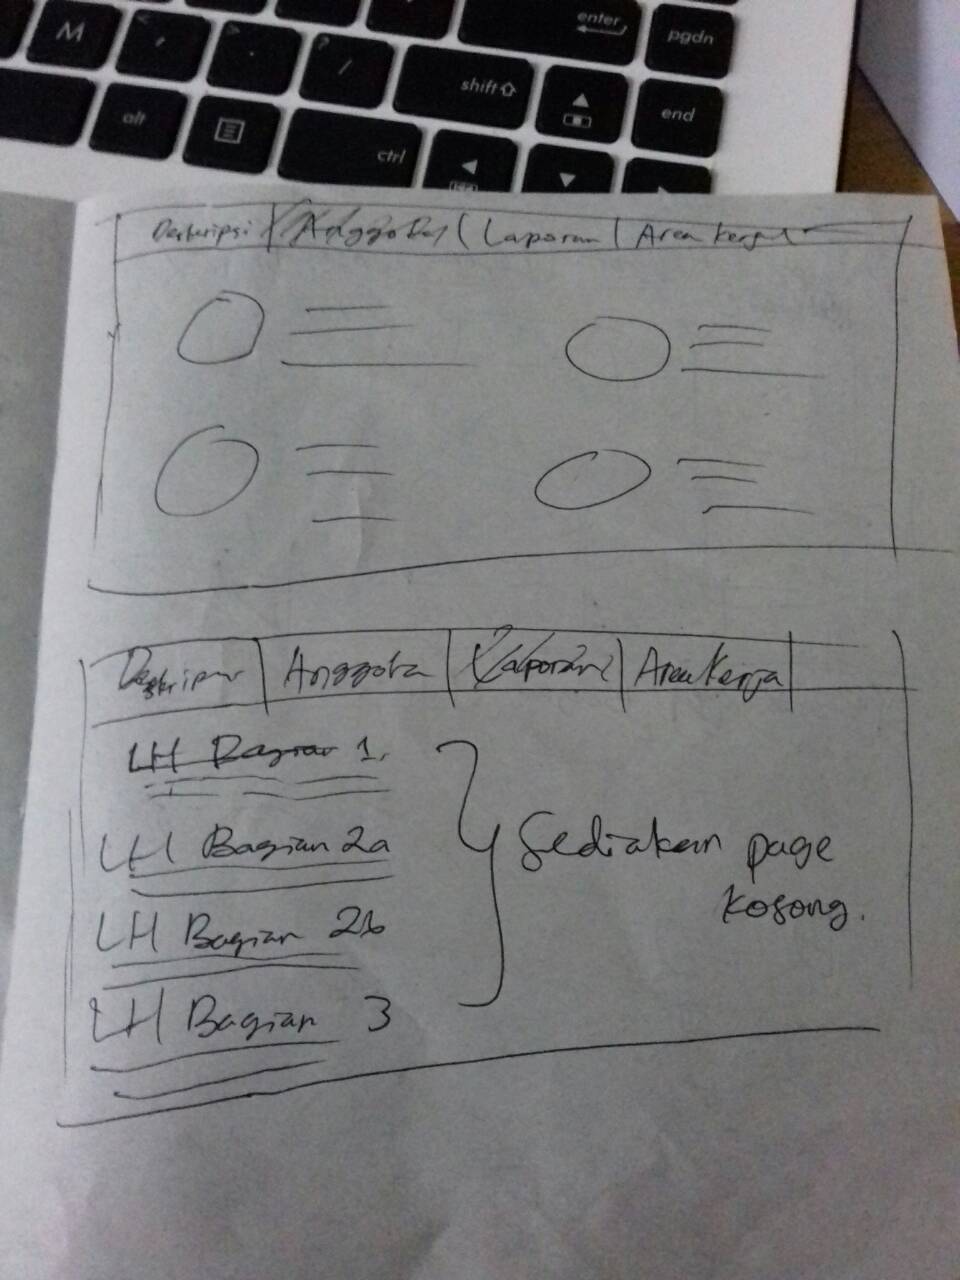 M , > . ? / enter pgdn
alt ctrl shift end
Deskripsi Anggota Laporan Area Kerja
Deskripsi Anggota Laporan Area Kerja
LH Bagian 1.
LH Bagian 2a
LH Bagian 2b
LH Bagian 3
Sediakan page
kosong.